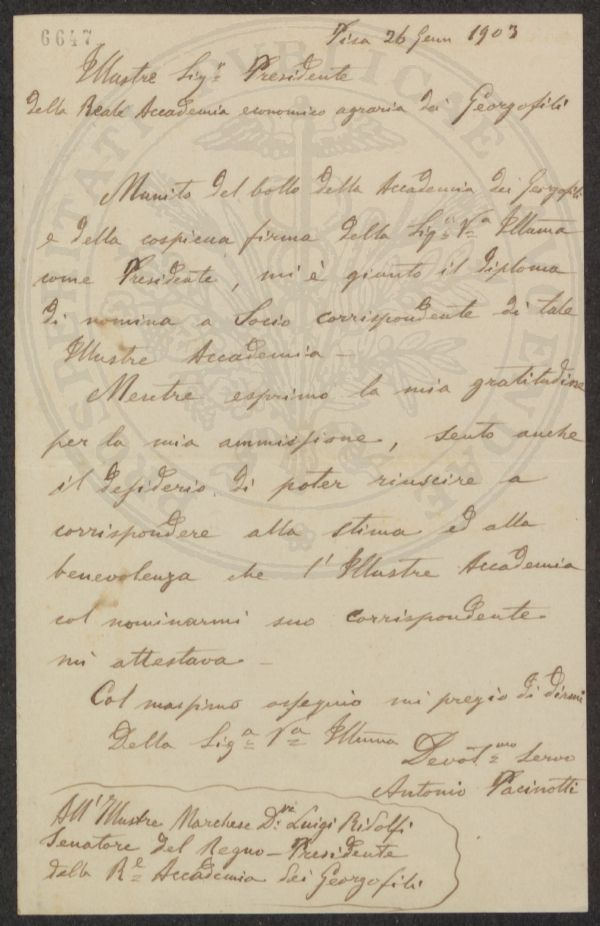 6647
Pisa 26 Genn 1903
Illustre Sigr Presidente
della Reale Accademia economico agraria dei Georgofili
Munito del bollo della Accademia dei Georgofili
e della cospicua firma della Siga Va Illuma
come Presidente, mi è giunto il diploma
di nomina a Socio corrispondente di tale
Illustre Accademia –
Mentre esprimo la mia gratitudine
per la mia ammissione, sento anche
il desiderio di poter riuscire a
corrispondere alla stima ed alla
benevolenza che l'Illustre Accademia
col nominarmi suo corrispondente
mi attestava –
Col massimo ossequio mi pregio di dirmi
Della Siga Va Illuma
Devotmo servo
Antonio Pacinotti
All'Illustre Marchese Dre Luigi Ridolfi
Senatore del Regno – Presidente
della Re Accademia dei Georgofili
PROSPERITATI PUBLICAE